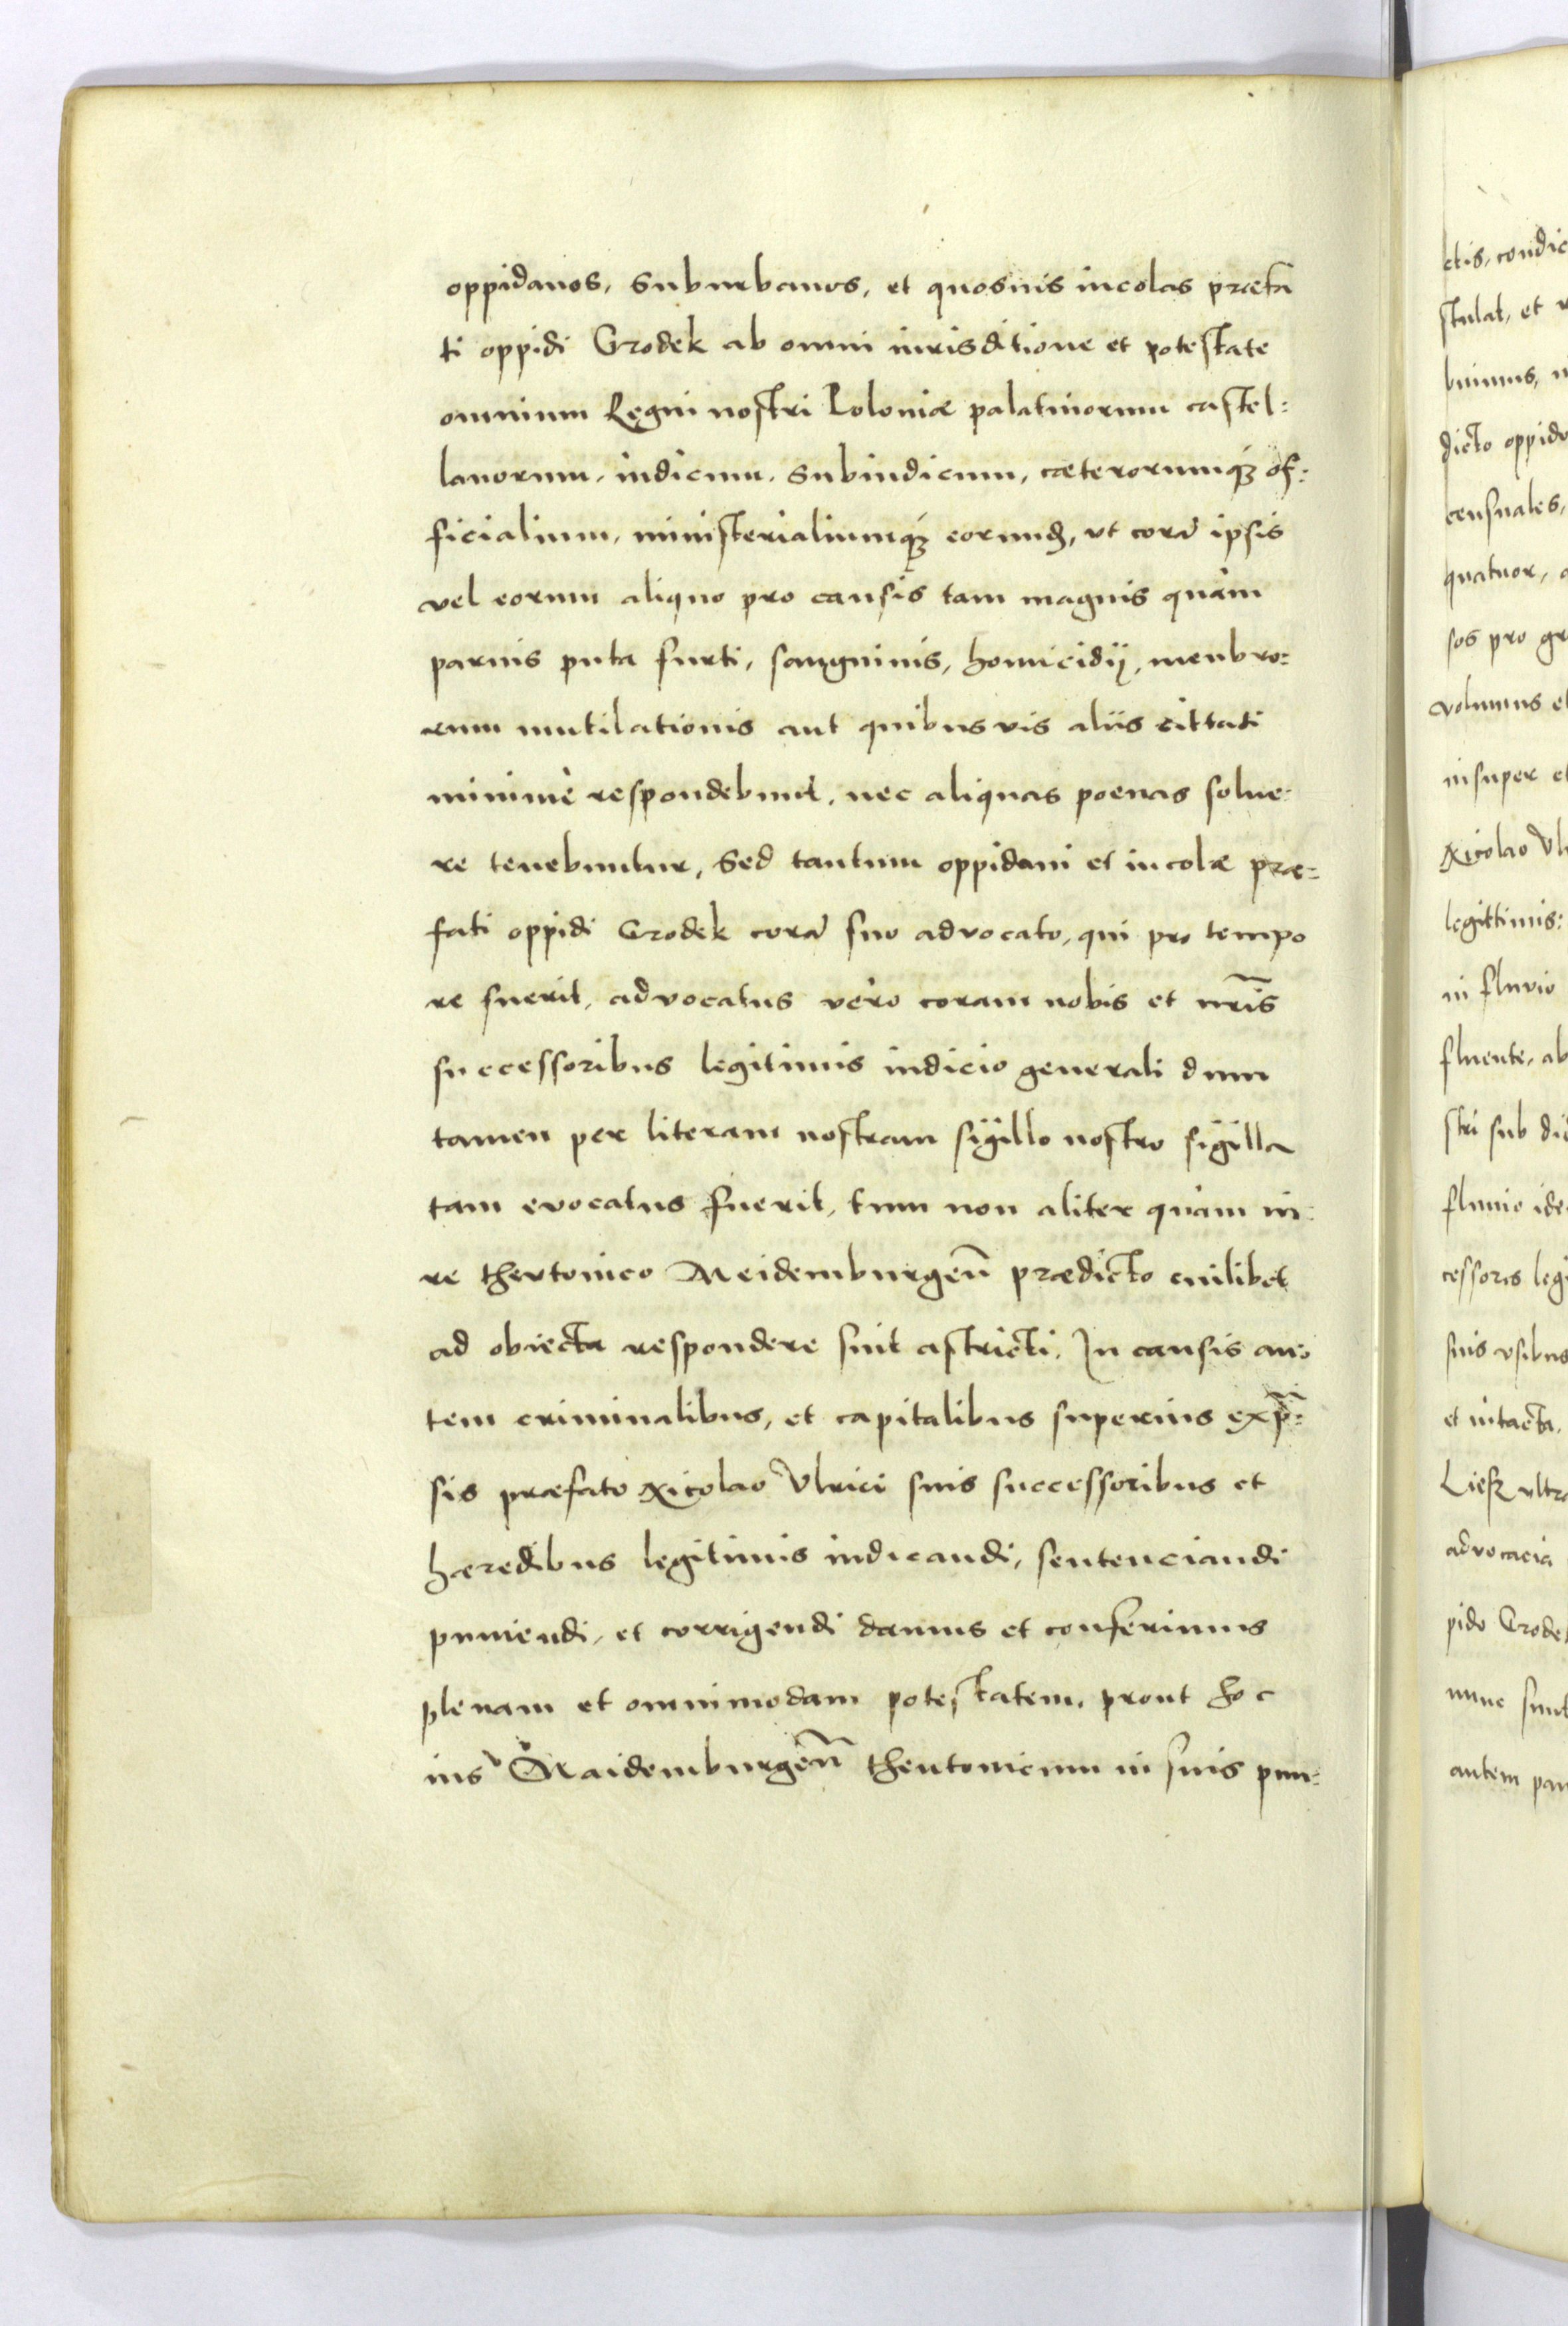 oppidanos, suburbanos, et quosuis incolas præfa
ti oppidi Grodek ab omni iurisditione et potestate
omnium Regni nostri Poloniæ palatinorum castel:
lanorum, iudicum, subiudicum, cæterorumq́ꝫ of:
ficialium, ministerialiumq́ꝫ eorund, vt corā ipsis
vel eorum aliquo pro causis tam magnis quàm
paruis puta furti, sanguinis, homicidij, menbro:
rum mutilationis aut quibus vis aliis cittati
minimè respondebunt, nec aliquas poenas solue:
re tenebuntur, Sed tantum oppidani et incolæ præ:
fati oppidi Grodek corā suo advocato, qui pro tempo
re fuerit, advocatus vèro coram nobis et nr̃is
successoribus legitimis iudicio generali dum
tamen per literam nostram sÿgillo nostro sÿgilla
tam evocatus fuerit, tum non aliter quàm iu:
re thevtonico Meidemburgen̄ prædicto cuilibet
ad obiecta respondere sint astricti. In causis au:
tem criminalibus, et capitalibus superius exp̄:
sis præfato Nicolao Vlrici suis successoribus et
hæredibus legitimis iudicandi, sentenciandi
puniendi, et corrigendi damus et conferimus
plenam et omnimodam potestatem, prout hoc
ius Maidemburgen̄ theutonicum in suis pun:
ctis, condic
stulat, et
buimus,
dicto oppido
censuales,
quatuor,
sos pro gr
volumus et
insuper et
Nicolao Vl
legittimis:
in fluvio
fluente, ab
stri sub di
fluuio ide
cessores legi
suis vsibus
et intacta,
Liesk vltra
advocacia
pido Grodek
nunc sunt
autem pa